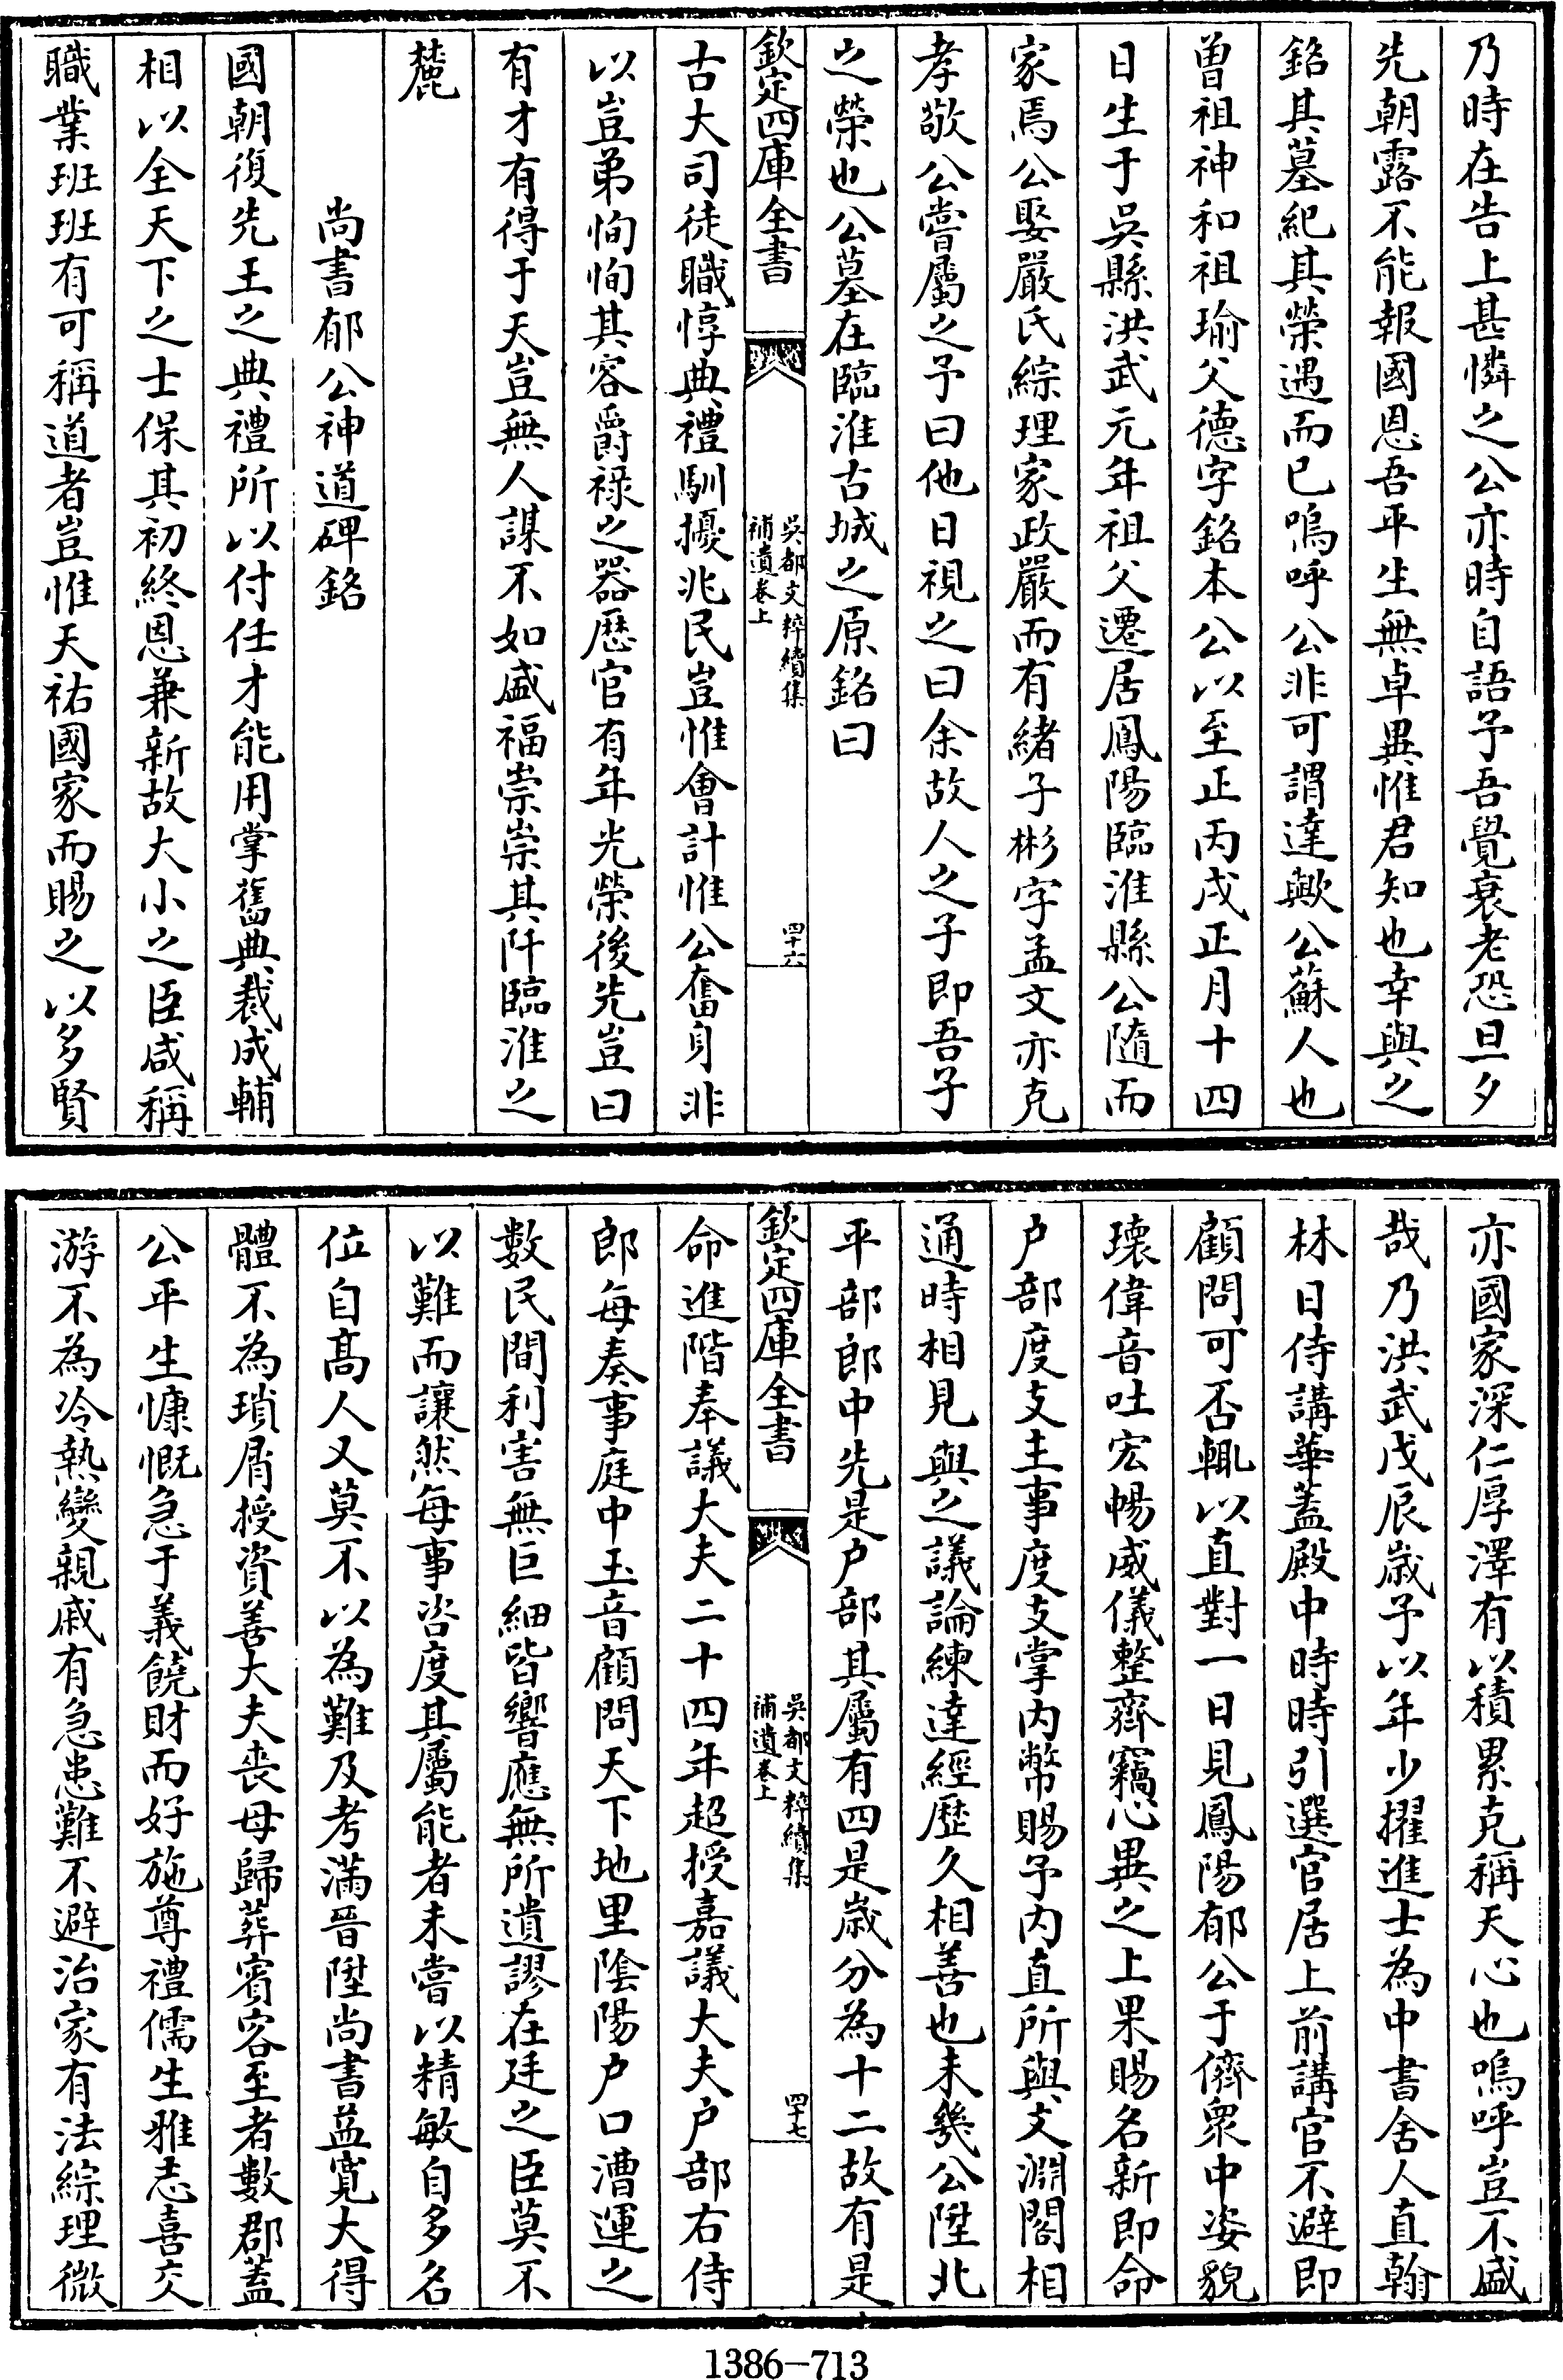 乃時在告上甚憐之公亦時自語予吾覺衰老恐旦夕
先朝露不能報國恩吾平生無卓異惟君知也幸與之
銘其墓紀其榮遇而已嗚呼公非可謂達歟公蘇人也
曽祖神和祖瑜父德字銘本公以至正丙戌正月十四
日生于吳縣洪武元年祖父遷居鳳陽臨淮縣公隨而
家焉公娶嚴氏綜理家政嚴而有緒子彬字孟文亦克
孝敬公嘗屬之予曰他日視之曰余故人之子即吾子
之榮也公墓在臨淮古城之原銘曰
欽定四庫全書
吳都文粹續集
補遺卷上
四十六
古大司徒職惇典禮馴擾兆民豈惟會計惟公奮身非
以豈弟恂恂其容爵禄之器歴官有年光榮後先豈曰
有才有得于天豈無人謀不如盛福崇崇其阡臨淮之
麓
尚書郁公神道碑銘
國朝復先王之典禮所以付任才能用掌舊典裁成輔
相以全天下之士保其初終恩兼新故大小之臣咸稱
職業班班有可稱道者豈惟天祐國家而賜之以多賢
亦國家深仁厚澤有以積累克稱天心也嗚呼豈不盛
哉乃洪武戊辰歲予以年少擢進士為中書舍人直翰
林日侍講華蓋殿中時時引選官居上前講官不避即
顧問可否輒以直對一日見鳳陽郁公于儕衆中姿貌
瓌偉音吐宏暢威儀整齊竊心異之上果賜名新即命
户部度支主事度支掌内幣賜予内直所與文淵閣相
通時相見與之議論練達經歴久相善也未幾公陞北
平部郎中先是户部其屬有四是歲分為十二故有是
欽定四庫全書
吳都文粹續集
補遺卷上
四十七
命進階奉議大夫二十四年超授嘉議大夫户部右侍
郎每奏事庭中玉音顧問天下地里隂陽户口漕運之
數民間利害無巨細皆響應無所遺謬在廷之臣莫不
以難而讓然每事咨度其屬能者未嘗以精敏自多名
位自髙人又莫不以為難及考滿晉陞尚書益寛大得
體不為瑣屑授資善大夫丧母歸葬賓客至者數郡蓋
公平生慷慨急于義饒財而好施尊禮儒生雅志喜交
游不為冷熱變親戚有急患難不避治家有法綜理微
1386-713